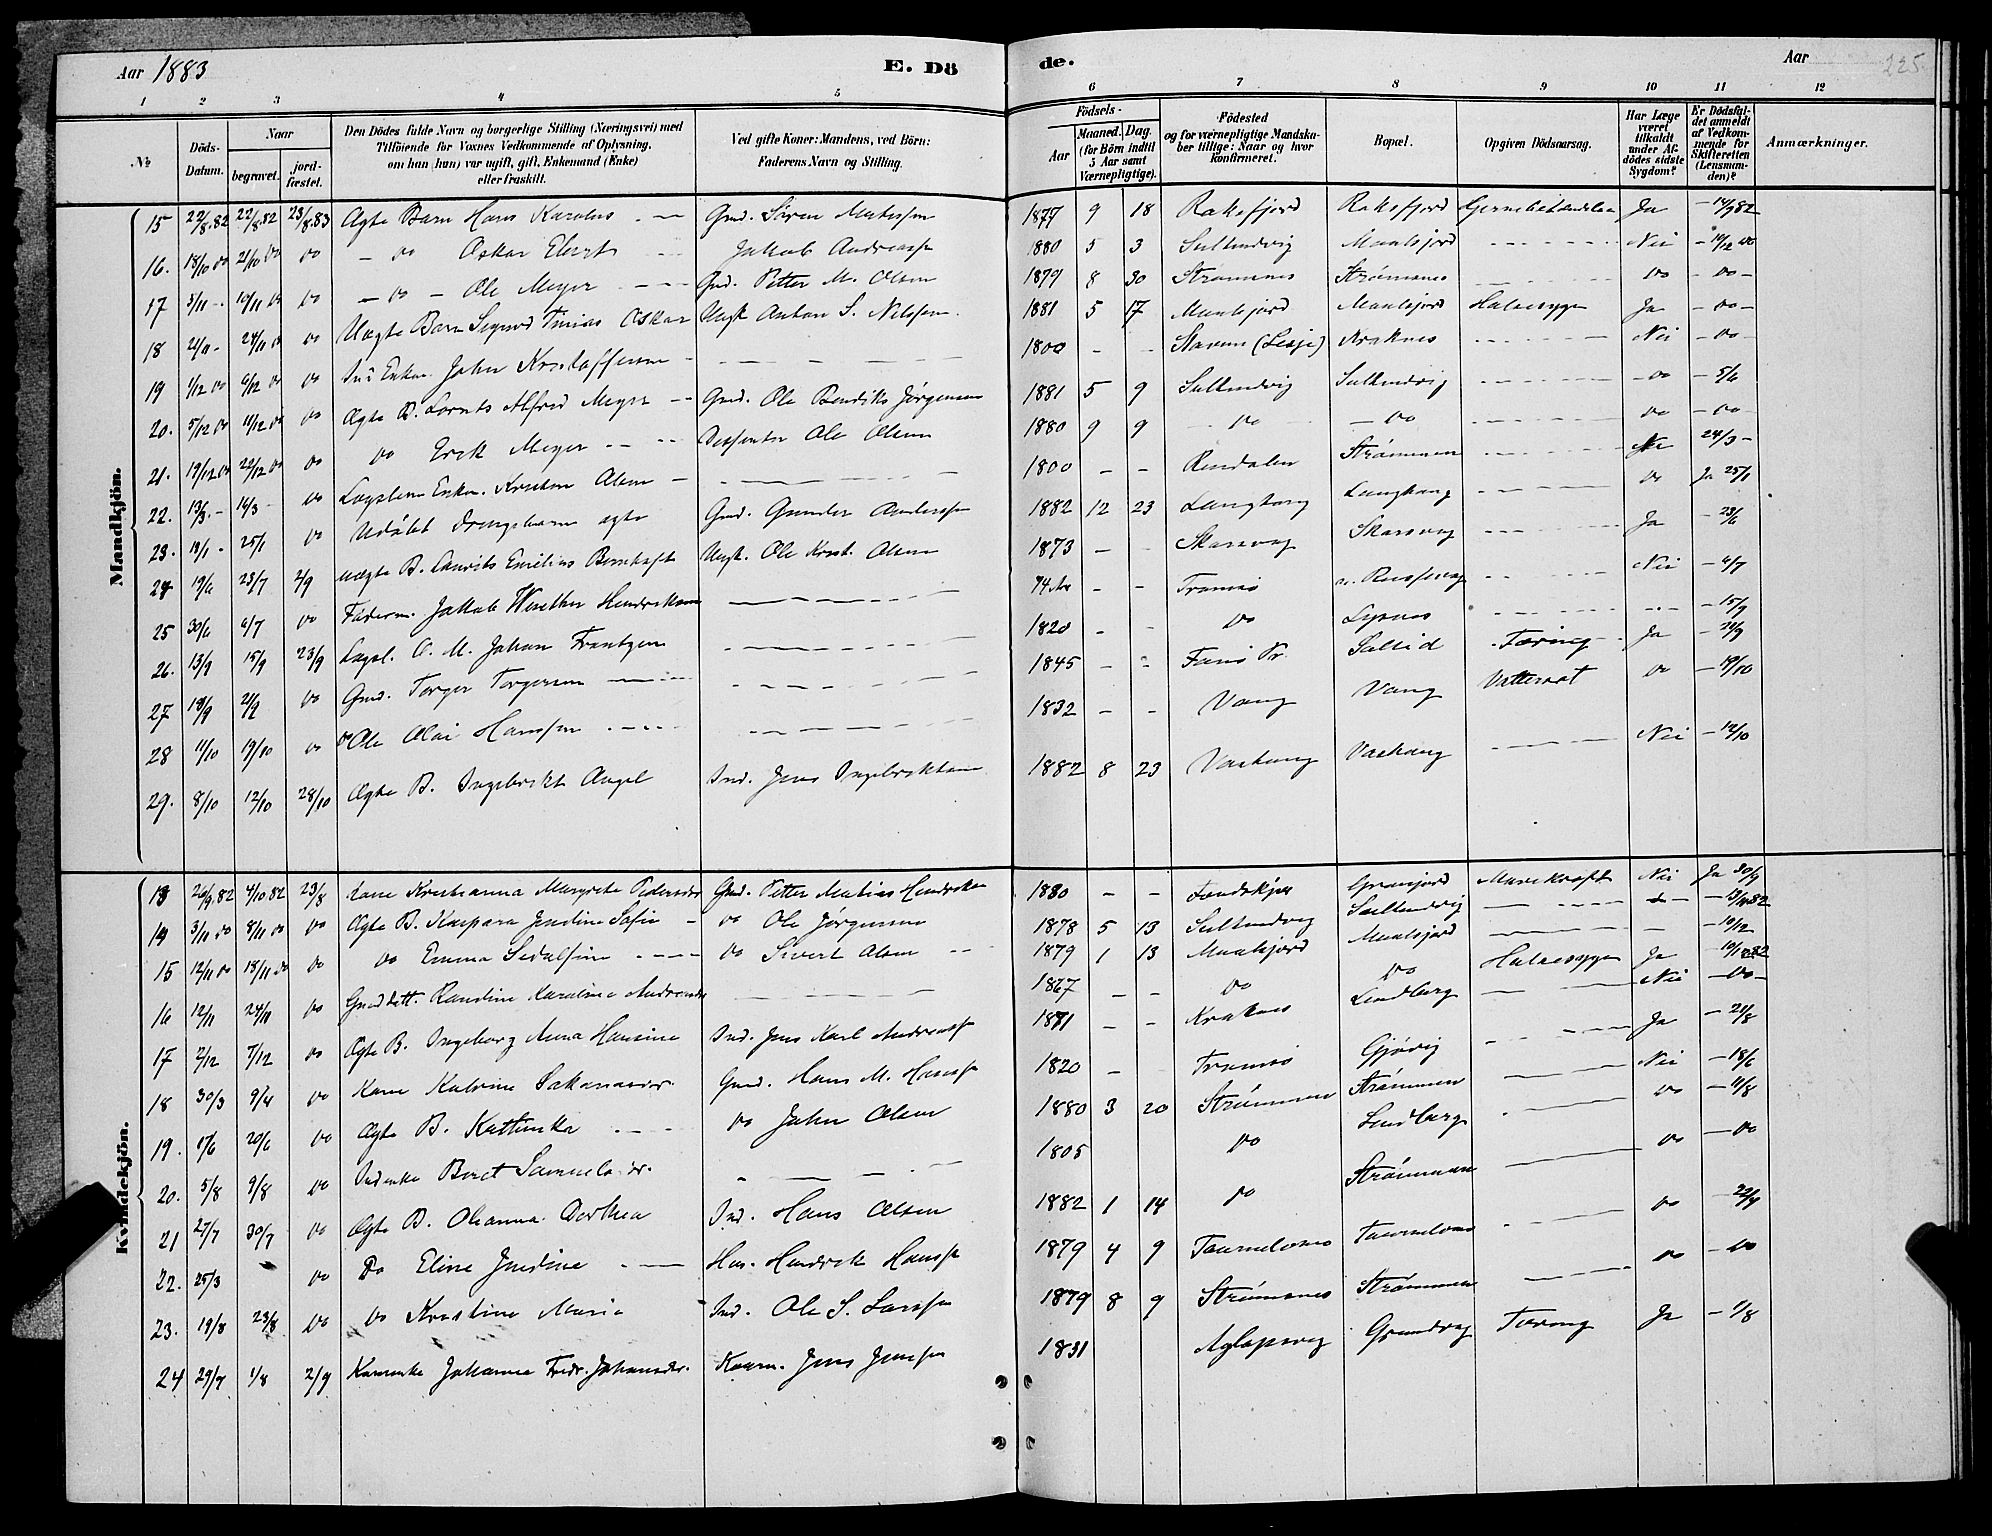 Aar 1883
E. Dö
de.
Aar
225.
1 2 3 4 5 6 7 8 9 10 11 12
№
Döds-Datum.
Naar
begravet.
jord-fæstet.
Den Dödes fulde Navn og borgerlige Stilling (Næringsvei) med Tilföiende for Voxnes Vedkommende af Oplysning, om han (hun) var ugift, gift, Enkemand (Enke) eller fraskilt.
Ved gifte Koner: Mandens, ved Börn: Faderens Navn og Stilling.
Födsels-
Aar
Maaned. Dag.
(for Börn indtil 5 Aar samt Værnepligtige).
Födested og for værnepligtige Mandskaber tillige: Naar og hvor konfirmeret.
Bopæl.
Opgiven Dödsaarsag.
Har Læge været tilkaldt under Afdödes sidste Sygdom?
Er Dödsfaldet anmeldt af Vedkommende for Skifteretten (Lensmanden)?
Anmærkninger.
Mandkjön.
15 22/8.82 22/8.82 23/8.83 Ægte Barn Hans Karolus Gmd. Søren 1877 9 18 Rakefjord Rakefjord Ja - 14/9 82
16. 18/10 do 21/10 do do - do Oskar Ebert Jakob Andreassn 1880 5 3 Sultendvig Maalsjord Nei - 10/12 do
17 3/11 - 10/11 do do - do - Ole Meyer Gmd. Petter M. Olsen 1879 8 30 Strømsnes Strømsnes do - do -
18 21/11 - 24/11 do do Uægte Barn Sigurd Tinias Oskar Ungk Anton S. Nilssen. 1881 5 17 Maalsjord Maalsjord Halsesyge Ja - do -
19 1/12 do 9/12 do do Enkm. John Kristoffersen 1800 - - (Lesje) Kraknes Nei - do -
20. 5/12 do 11/12 do do Ægte B. Lornts Alfred Meyer Gmd. Ole Bendiks Jørgensen 1881 5 9 Sultendvig Sultendvig - do - 5/6
21. 19/12 do 22/12 do do do Erik Meyer Dissenter Ole Olsen 1880 9 9 do - do do - do -
22. 13/3 - 16/3 - do Lægslem Enkm. Kristen Olsen 1800 - - Rendalen Strømmen Nei 24/3 -
23. 18/1 - 25/1 do Udøbt Drengebarn ægte Gmd. Gunder Anderssn 1882 12 23 Langhaug Langhaug do Ja 25/1
24 19/6 23/7 2/9 Uægte B. Laurits Emilius Bernhoft Ungk. Ole Krist. Olsen 1873 - - Skarsvag Skarsvag Ja - 23/6
25 30/6 6/7 do Føderm. Jakob Wenther Hendriksen 74 Aar - - Tromsø Nei - 4/7
26. 13/9 15/9 23/9 Lægsl. O. M. Johan Frantzen 1820 - - do Lysnes - 15/9
27 18/9 21/9 do Gmd. Torger Torgersen 1845 - - Fanø Pr. Soltid Tæring Ja - 21/9
28 11/10 19/10 do do Ole Olai Hanssen 1832 - - Vang Vang Vattersot do - 19/10
29. 8/10 12/10 28/10 Ægte B. Ingebrikt Angel Ind. Jens Ingebriktsen 1882 8 23 Vashaug Vashaug Nei - 12/10
Kvindekjön.
13 20/9.82 4/10 82 23/8 Kone Kristianna Margrete Pedersdr Gmd. Petter Matias Hendriksn 1830 - - Gransjord Nei Ja 30/9
14 3/11 do 8/11 do do Ægte B. Kaspara Jendine Sofie do Ole Jørgensen 1878 5 13 Sultendvig Sultendvig - 13/11 82
15 12/11 do 18/11 do do do Emma Sedalsine do Sivert Olsen 1879 1 13 Maalsjord Maalsjord - 10/12
16 12/11 24/11 do Gmd Datt. Randine Karoline Andreasdr 1867 - - do do Halsesyge Ja - 10/12 82
17 2/12 7/12 do Ægte B. Ingeborg Anna Hansine Ind. Jens Karl Andreassn 1871 - - Kraknes Lendberg Nei - do -
18 30/3 9/4 do Kone Katrine Sakariasdr. Gmd. Hans M. Hanssn 1820 - Tromsø Gjøvig Ja - 21/8
19. 17/6 20/6 do Ægte B. Kattinka do John Olsen 1880 3 20 Strømmen Strømmen Nei - 18/6
20. 5/8 9/8 do Indenke Beret Samuelsdr. 1805 do Lendberg do - 11/8
21 27/7 30/7 do Ægte B. Olianna Dorthea Ind. Hans Olsen 1882 1 14 do Strømmen do - do
22. 25/3 do Do Eline Jendine Hus. Hendrik Hanssn 1879 4 9 do - 22/4
23. 19/8 23/8 do do Kristine Marie Ind. Ole S. Larssn 1879 8 9 Strømsnes Strømmen do - do
24 29/7 1/8 2/9 Johanna Fredr. Johansdr. Jens Jenssn 1831 Aglapsvig Grundvag Tæring Ja - 1/8